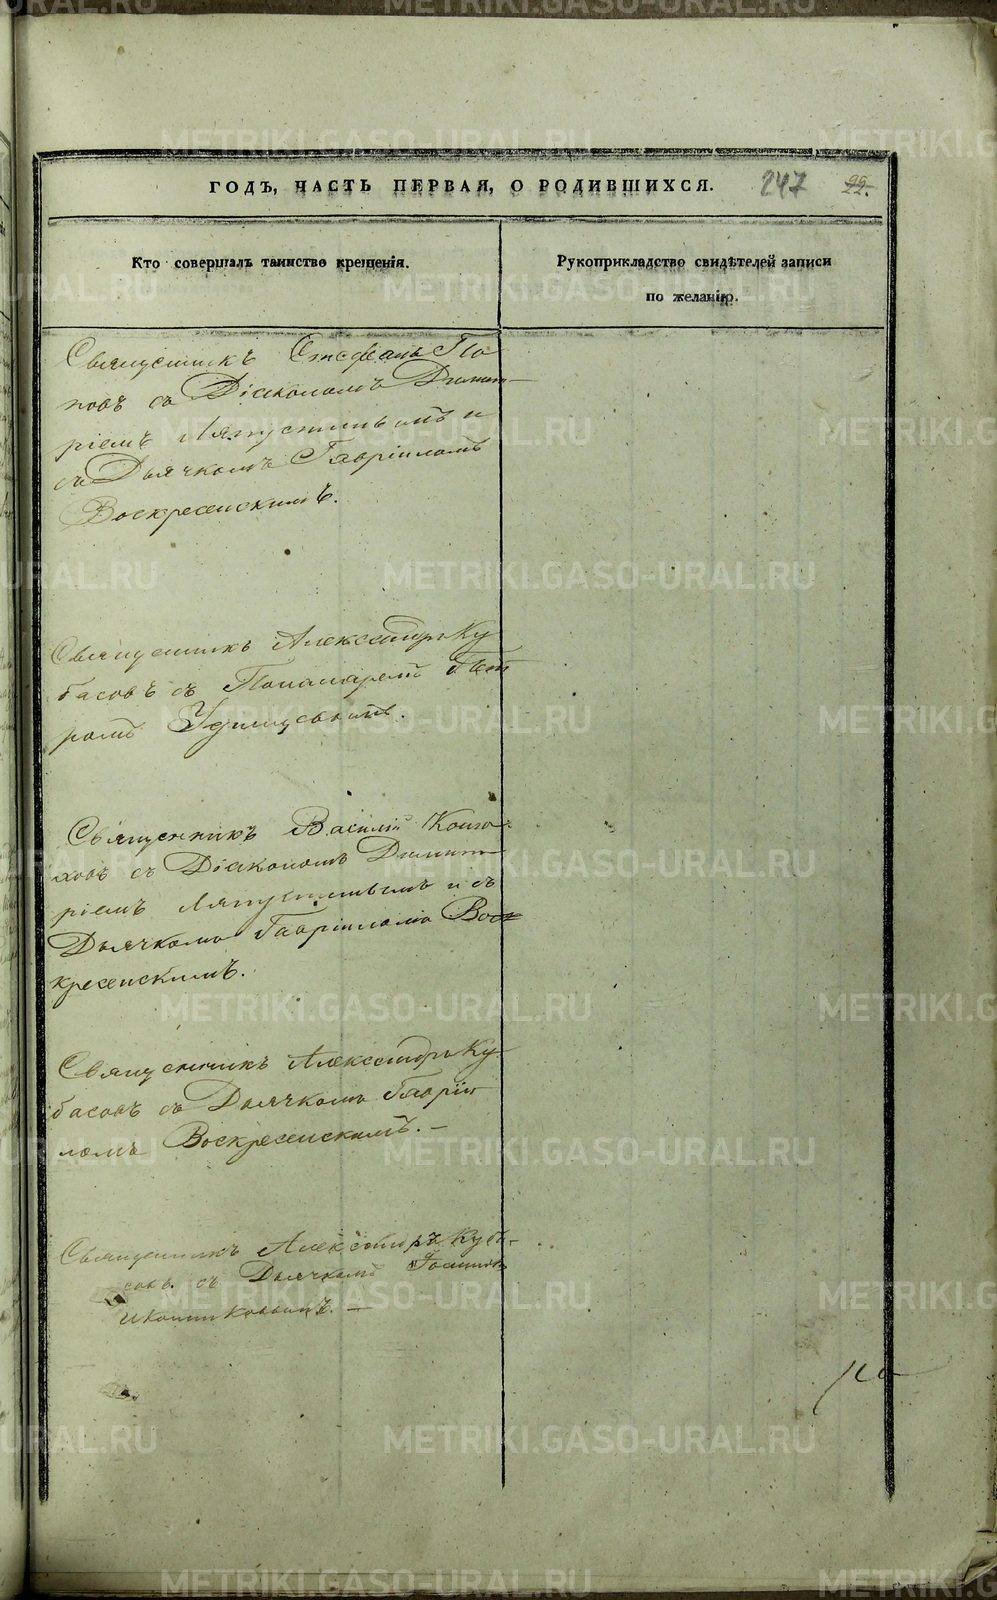 ГОДЪ, ЧАСТЬ ПЕРВАЯ, О РОДИВШИХСЯ. 247 99.
Кто совершалъ таинство крещенія.
Рукоприкладство свидѣтелей записи
по желанію.
Священникъ Стефанъ По
повъ съ Діакономъ Димит
ріемъ Ляпустинымъ и
съ Дьячкомъ Гавріиломъ
Воскресенскимъ.
Священникъ Александръ Ку
басовъ съ Пономаремъ Пет
ромъ
Священникъ Василій
съ Діакономъ Димит
ріемъ Ляпустинымъ и съ
Дьячкомъ Гавріиломъ Вос
кресенскимъ.
Священникъ Александръ Ку
басовъ съ Дьячкомъ Гаврiи
ломъ Воскресенскимъ. —
Священникъ Александръ Куба-
совъ съ Дьячкомъ
Иконниковымъ. —
METRIKI.GASO-URAL.RU